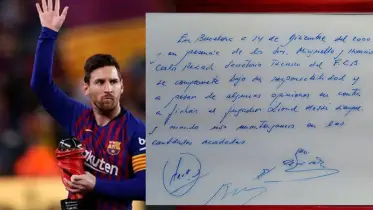 En Barcelona, a 14 de diciembre del 2000
y en presencia de los Srs. Minguella y Horacio
Carlos Rexach, Secretario Técnico del F.C.B
se compromete bajo su responsabilidad y
a pesar de algunas opiniones en contra
a fichar al jugador Lionel Messi siempre
y cuando nos mantengamos en las
cantidades acordadas
Rakuten